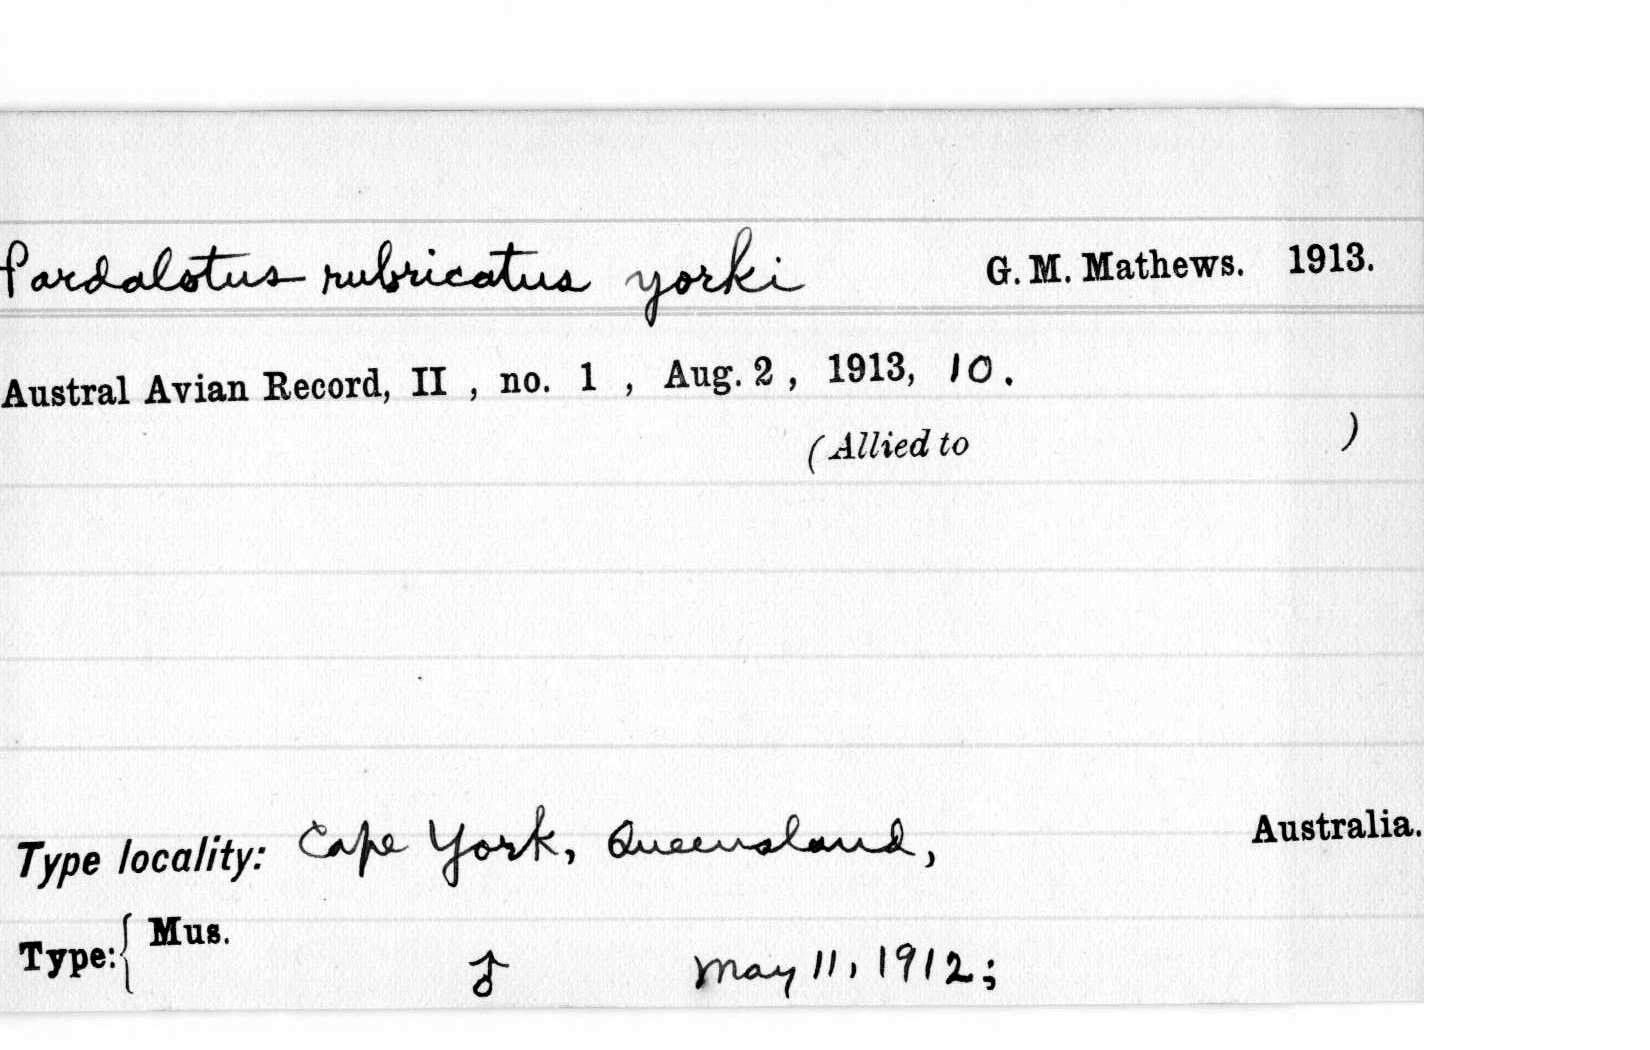 Pardalotus rubricatus yorki G. M. Mathews. 1913.
Austral Avian Record, II , no. 1 , Aug. 2 , 1913, 10.
(Allied to )
Type locality: Cape York, Queensland, Australia.
Type: { Mus.
♂ May 11, 1912;